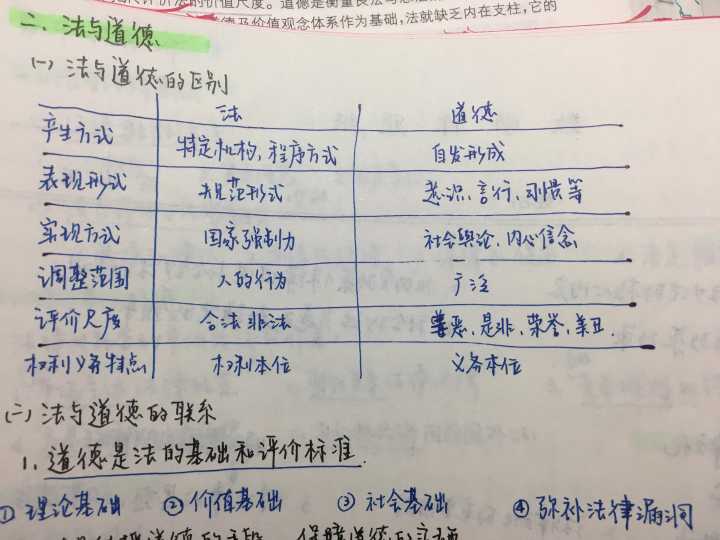 价值尺度。道德是衡量良法与恶法
价值观念体系作为基础,法就缺乏内在支柱,它的
二、法与道德
(一) 法与道德的区别
法 道德
产生方式 特定机构、程序方式 自发形成
表现形式 规范形式 意识、言行、习惯等
实现方式 国家强制力 社会舆论、内心信念
调整范围 人的行为 广泛
评价尺度 合法非法 善恶、是非、荣誉、美丑
权利义务特点 权利本位 义务本位
(二) 法与道德的联系
1. 道德是法的基础和评价标准
① 理论基础 ② 价值基础 ③ 社会基础 ④ 弥补法律漏洞
道德的手段,保障道德的实现